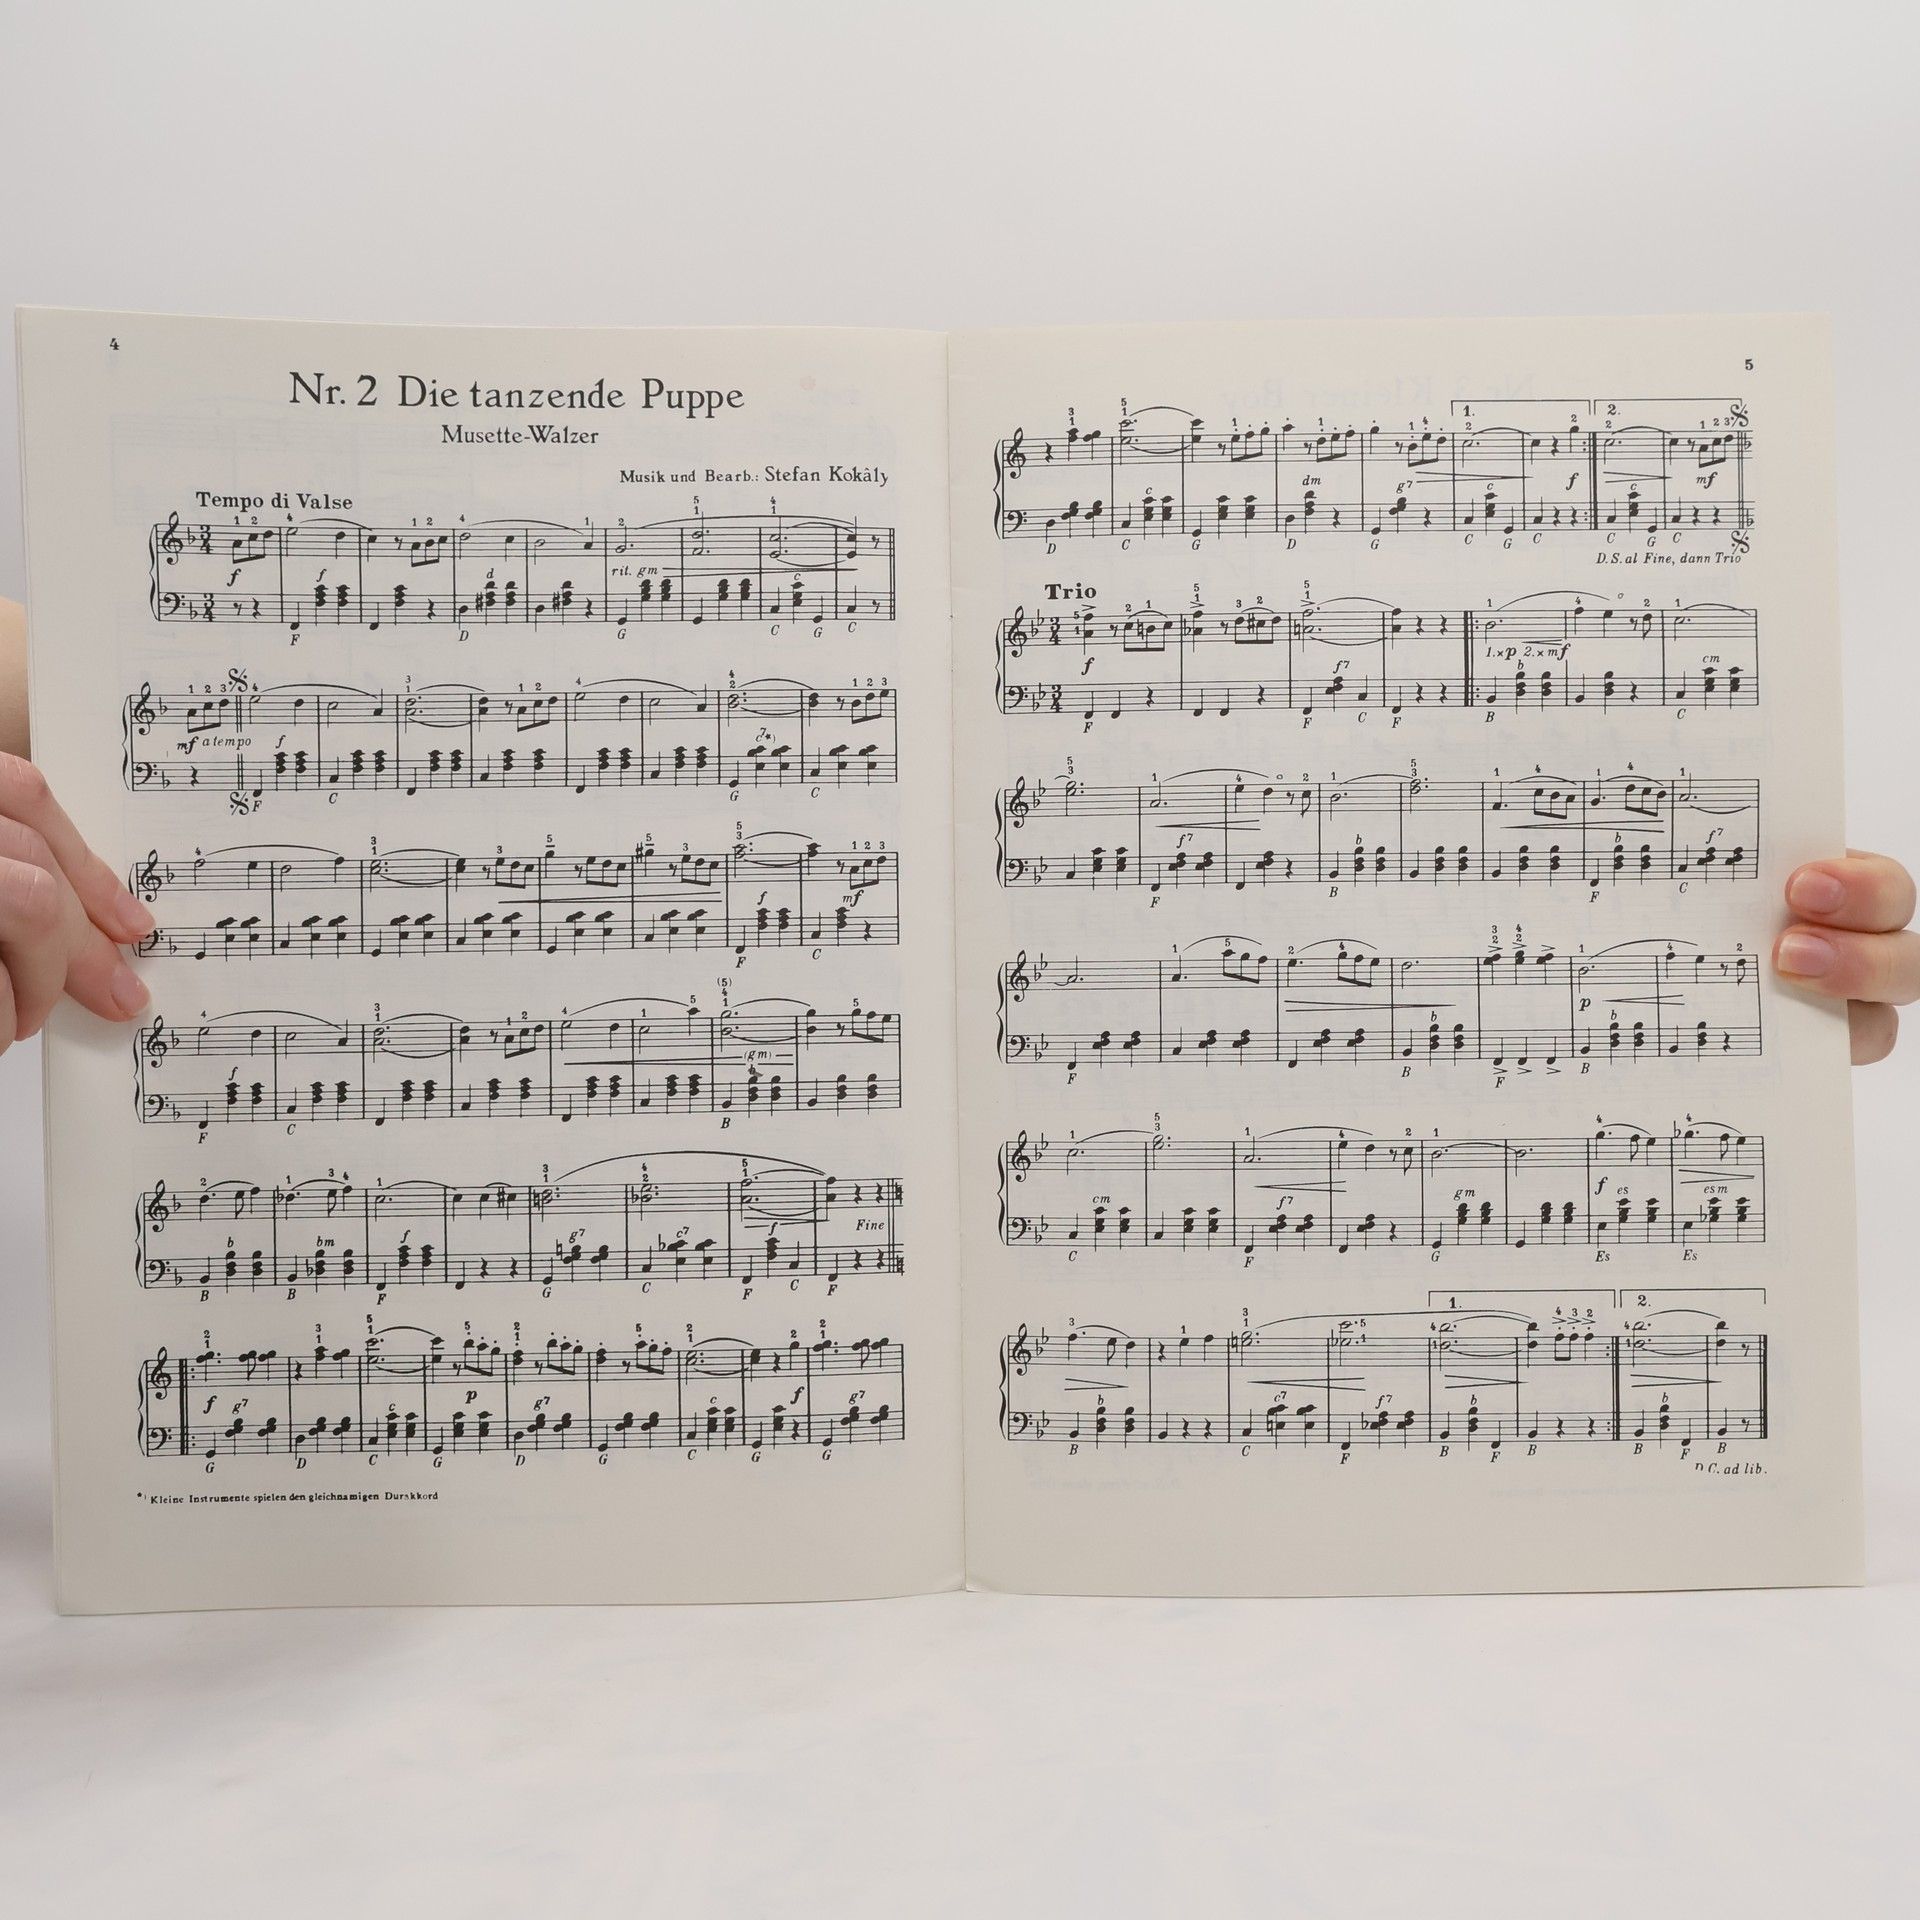 4
Nr. 2 Die tanzende Puppe
Musette-Walzer
Musik und Bearb.: Stefan Kokâly
Tempo di Valse
f f d rit. gm c
F D G C G C
mf a tempo f c7*)
F C G C
f mf
F C
f (gm) b
F C F B
b bm f g7 c7 f Fine
B B F G C F C F
f g7 c p g7 c f g7
G D C G D G C G G
*) Kleine Instrumente spielen den gleichnamigen Durakkord
5
1. 2.
c dm g7 c f c mf
D C G D G C G C C G C
D.S. al Fine, dann Trio
Trio
f f7 1.×p 2.×mf b cm
F F F C F B C
f7 b b f7
F B F C
b p b
F B F B
cm f7 gm f es esm
C F G Es Es
1. 2.
b c7 f7 b b
B C F B F B B F B
D.C. ad lib.